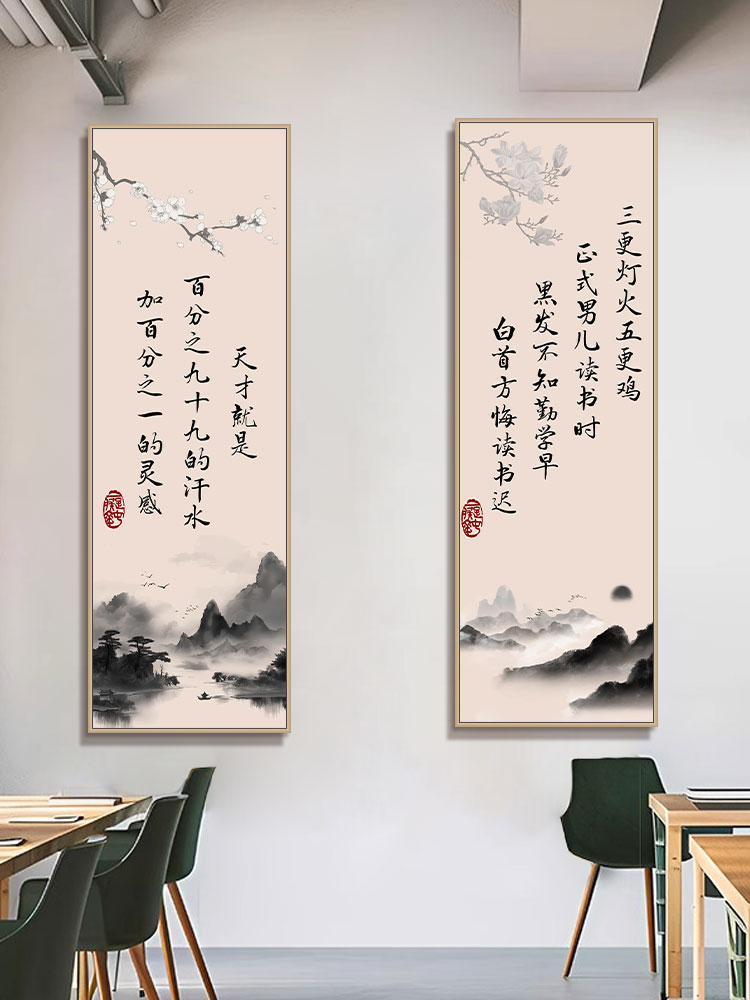 天才就是
百分之九十九的汗水
加百分之一的灵感
三更灯火五更鸡
正式男儿读书时
黑发不知勤学早
白首方悔读书迟